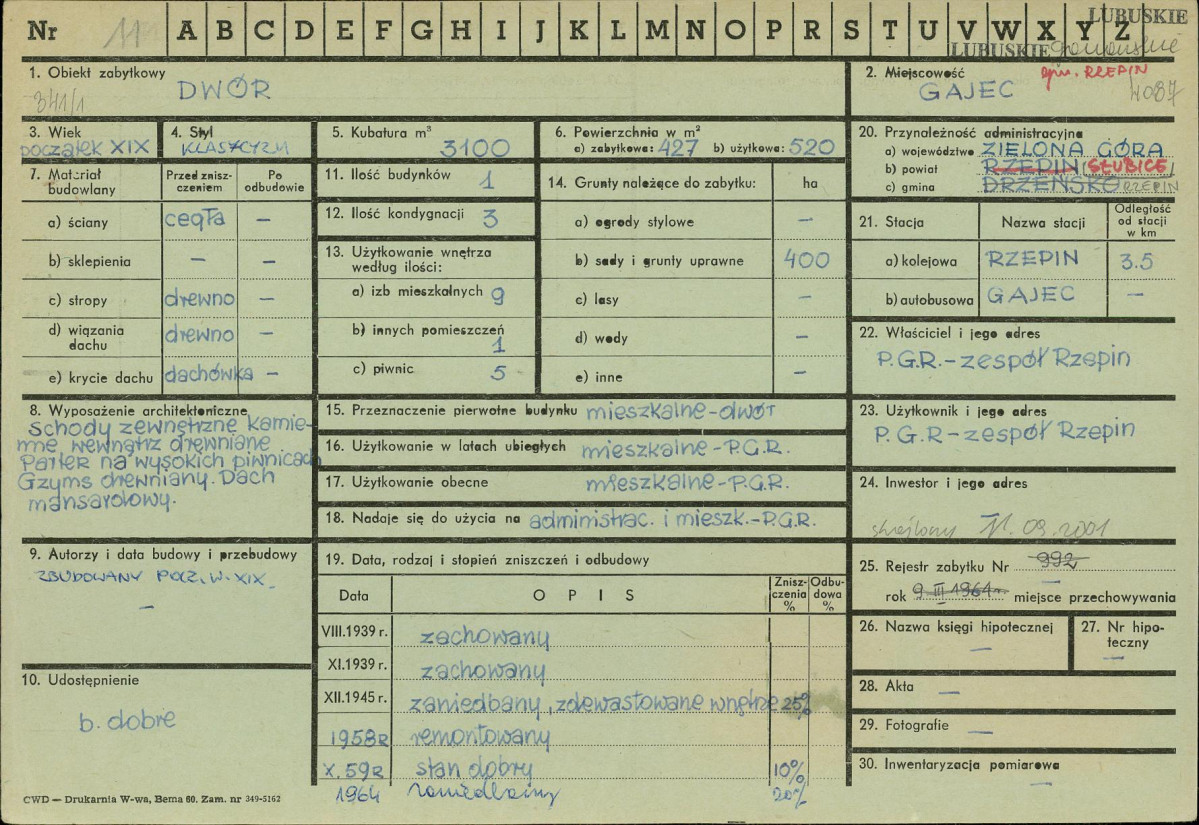 Nr 11 A B C D E F G H I J K L M N O P R S T U V W X Y Z
LUBUSKIE
LUBUSKIE
1. Obiekt zabytkowy
DWÓR
341/1
2. Miejscowość
gm. RZEPIN
GAJEC
4087
3. Wiek
początek XIX
4. Styl
KLASYCYZM
5. Kubatura m³
3100
6. Powierzchnia w m²
a) zabytkowa: 427 b) użytkowa: 520
20. Przynależność administracyjna
a) województwo ZIELONA GÓRA
b) powiat RZEPIN SŁUBICE
c) gmina DRZEŃSKO RZEPIN
7. Materiał budowlany
Przed zniszczeniem
Po odbudowie
a) ściany cegła –
b) sklepienia – –
c) stropy drewno –
d) wiązania dachu drewno –
e) krycie dachu dachówka –
11. Ilość budynków 1
12. Ilość kondygnacji 3
13. Użytkowanie wnętrza
według ilości:
a) izb mieszkalnych 9
b) innych pomieszczeń
1
c) piwnic 5
14. Grunty należące do zabytku: ha
a) ogrody stylowe –
b) sady i grunty uprawne 400
c) lasy –
d) wody –
e) inne –
21. Stacja
Nazwa stacji
Odległość
od stacji
w km
a) kolejowa RZEPIN 3.5
b) autobusowa GAJEC –
22. Właściciel i jego adres
P.G.R.-zespół Rzepin
8. Wyposażenie architektoniczne
Schody zewnętrzne kamie-
nne wewnątrz drewniane
Parter na wysokich piwnicach
Gzyms drewniany. Dach
mansardowy.
15. Przeznaczenie pierwotne budynku mieszkalne-dwór
16. Użytkowanie w latach ubiegłych mieszkalne-P.G.R.
17. Użytkowanie obecne mieszkalne-P.G.R.
18. Nadaje się do użycia na administrac. i mieszk.-P.G.R.
23. Użytkownik i jego adres
P.G.R-zespół Rzepin
24. Inwestor i jego adres
–
skreślony 11.09.2001
9. Autorzy i data budowy i przebudowy
ZBUDOWANY POCZ. W. XIX
–
10. Udostępnienie
b. dobre
19. Data, rodzaj i stopień zniszczeń i odbudowy
Data
OPIS
Znisz-
czenia
%
Odbu-
dowa
%
VIII.1939 r. zachowany
XI.1939 r. zachowany
XII.1945 r. zaniedbany, zdewastowane wnętrze 25%
1958R remontowany
X.59R stan dobry 10%
1964 zaniedbany 20%
25. Rejestr zabytku Nr 992
–
rok 9 III 1961 r. miejsce przechowywania
26. Nazwa księgi hipotecznej
–
27. Nr hipo-
teczny
–
28. Akta –
29. Fotografie –
30. Inwentaryzacja pomiarowa
–
CWD — Drukarnia W-wa, Bema 60. Zam. nr 349-5162